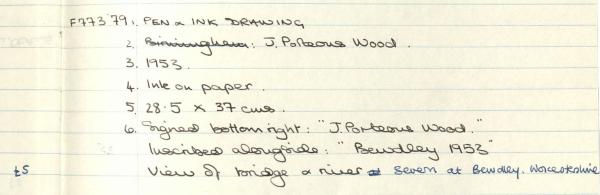 F773'79 1. PEN & INK DRAWING
2. Birmingham: J. Porteous Wood.
3. 1953.
4. Ink on paper.
5. 28.5 × 37 cms.
6. Signed bottom right: "J. Porteous Wood."
Inscribed alongside: "Bewdley 1953"
£5 View of bridge & river at Severn at Bewdley. Worcestershire